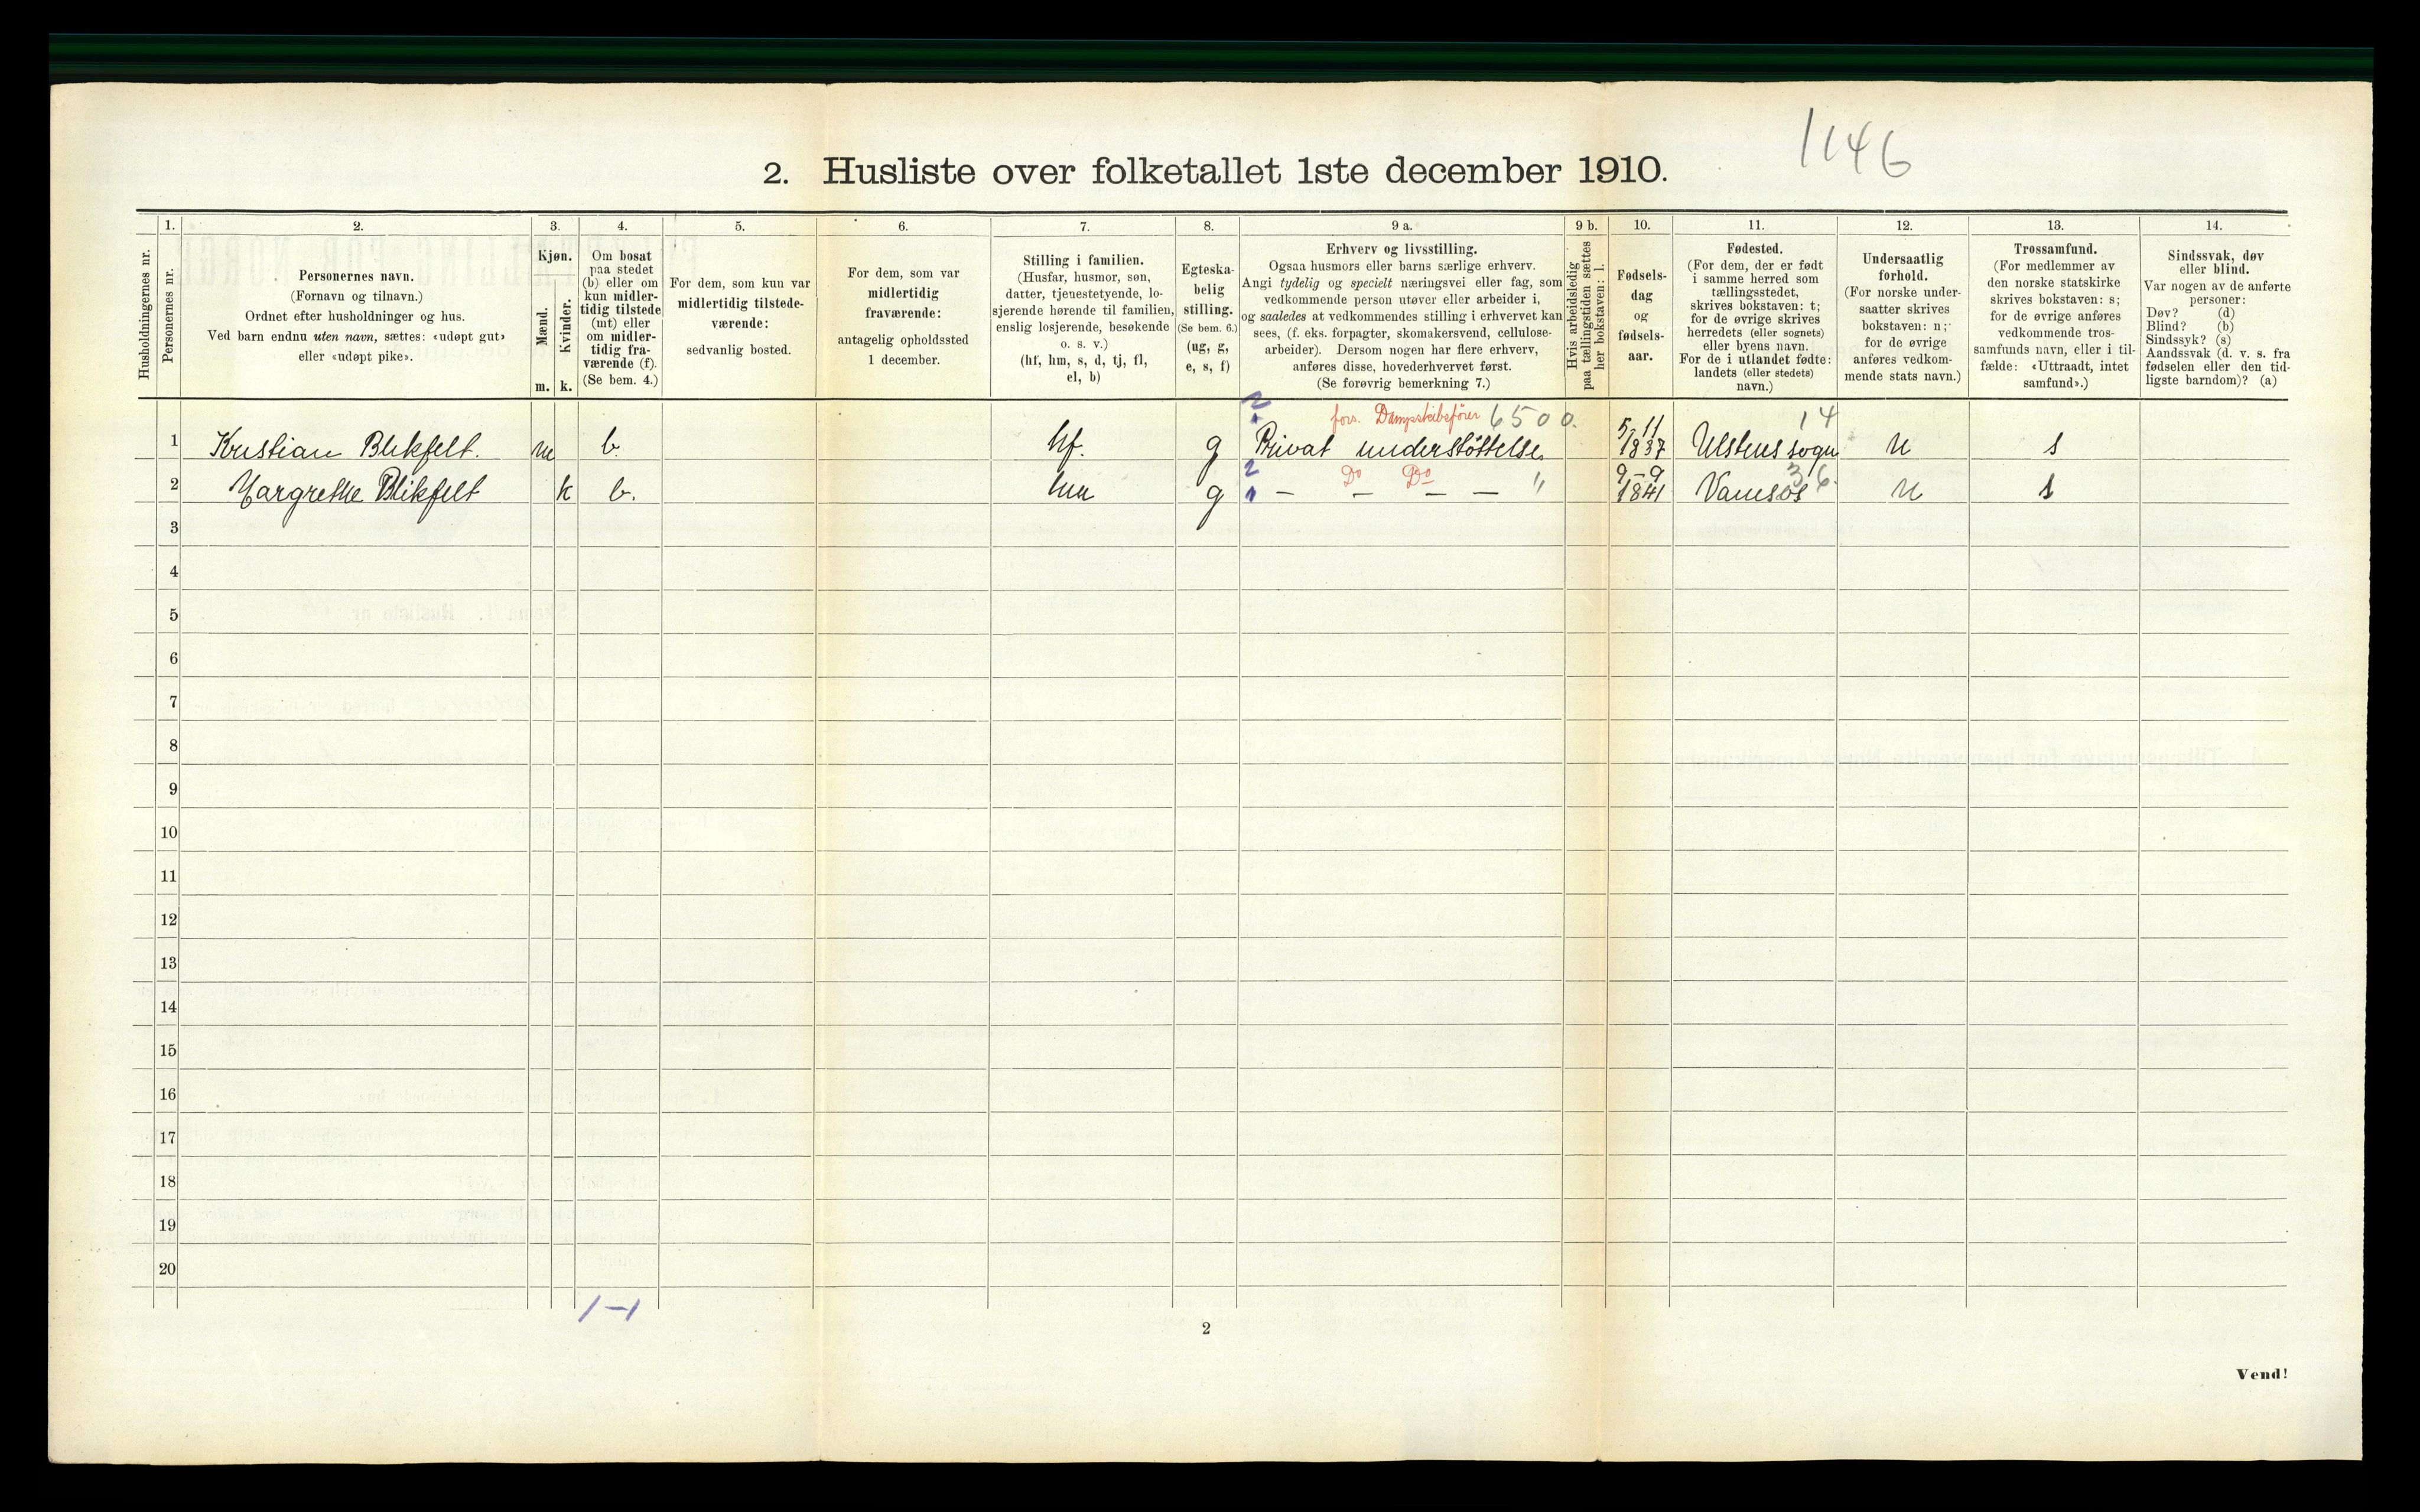 1146
2. Husliste over folketallet 1ste december 1910.
Husholdningernes nr.
1.
Personernes nr.
2.
Personernes navn.
(Fornavn og tilnavn.)
Ordnet efter husholdninger og hus.
Ved barn endnu uten navn, sættes: «udøpt gut»
eller «udøpt pike».
3.
Kjøn.
Mænd.
Kvinder.
m. k.
4.
Om bosat
paa stedet
(b) eller om
kun midler-
tidig tilstede
(mt) eller
om midler-
tidig fra-
værende (f).
(Se bem. 4.)
5.
For dem, som kun var
midlertidig tilstede-
værende:
sedvanlig bosted.
6.
For dem, som var
midlertidig
fraværende:
antagelig opholdssted
1 december.
7.
Stilling i familien.
(Husfar, husmor, søn,
datter, tjenestetyende, lo-
sjerende hørende til familien,
enslig losjerende, besøkende
o. s. v.)
(hf, hm, s, d, tj, fl,
el, b)
8.
Egteska-
belig
stilling.
(Se bem. 6.)
(ug, g,
e, s, f)
9 a.
Erhverv og livsstilling.
Ogsaa husmors eller barns særlige erhverv.
Angi tydelig og specielt næringsvei eller fag, som
vedkommende person utøver eller arbeider i,
og saaledes at vedkommendes stilling i erhvervet kan
sees, (f. eks. forpagter, skomakersvend, cellulose-
arbeider). Dersom nogen har flere erhverv,
anføres disse, hovederhvervet først.
(Se forøvrig bemerkning 7.)
9 b.
Hvis arbeidsledig
paa tællingstiden sættes
her bokstaven: l.
10.
Fødsels-
dag
og
fødsels-
aar.
11.
Fødested.
(For dem, der er født
i samme herred som
tællingsstedet,
skrives bokstaven: t;
for de øvrige skrives
herredets (eller sognets)
eller byens navn.
For de i utlandet fødte:
landets (eller stedets)
navn.)
12.
Undersaatlig
forhold.
(For norske under-
saatter skrives
bokstaven: n;
for de øvrige
anføres vedkom-
mende stats navn.)
13.
Trossamfund.
(For medlemmer av
den norske statskirke
skrives bokstaven: s;
for de øvrige anføres
vedkommende tros-
samfunds navn, eller i til-
fælde: «Uttraadt, intet
samfund».)
14.
Sindssvak, døv
eller blind.
Var nogen av de anførte
personer:
Døv? (d)
Blind? (b)
Sindssyk? (s)
Aandssvak (d. v. s. fra
fødselen eller den tid-
ligste barndom)? (a)
2 fors. Dampskibsfører 6500. 14
1 Kristian Blikfelt. m b hf. g Privat understøttelse 5-11 1837 sogn n s
2 Do Do 36.
2 Margrethe Blikfelt k b. hm g 1 – – – – " 9-9 1841 n s
3
4
5
6
7
8
9
10
11
12
13
14
15
16
17
18
19
20
1–1
2
Vend!